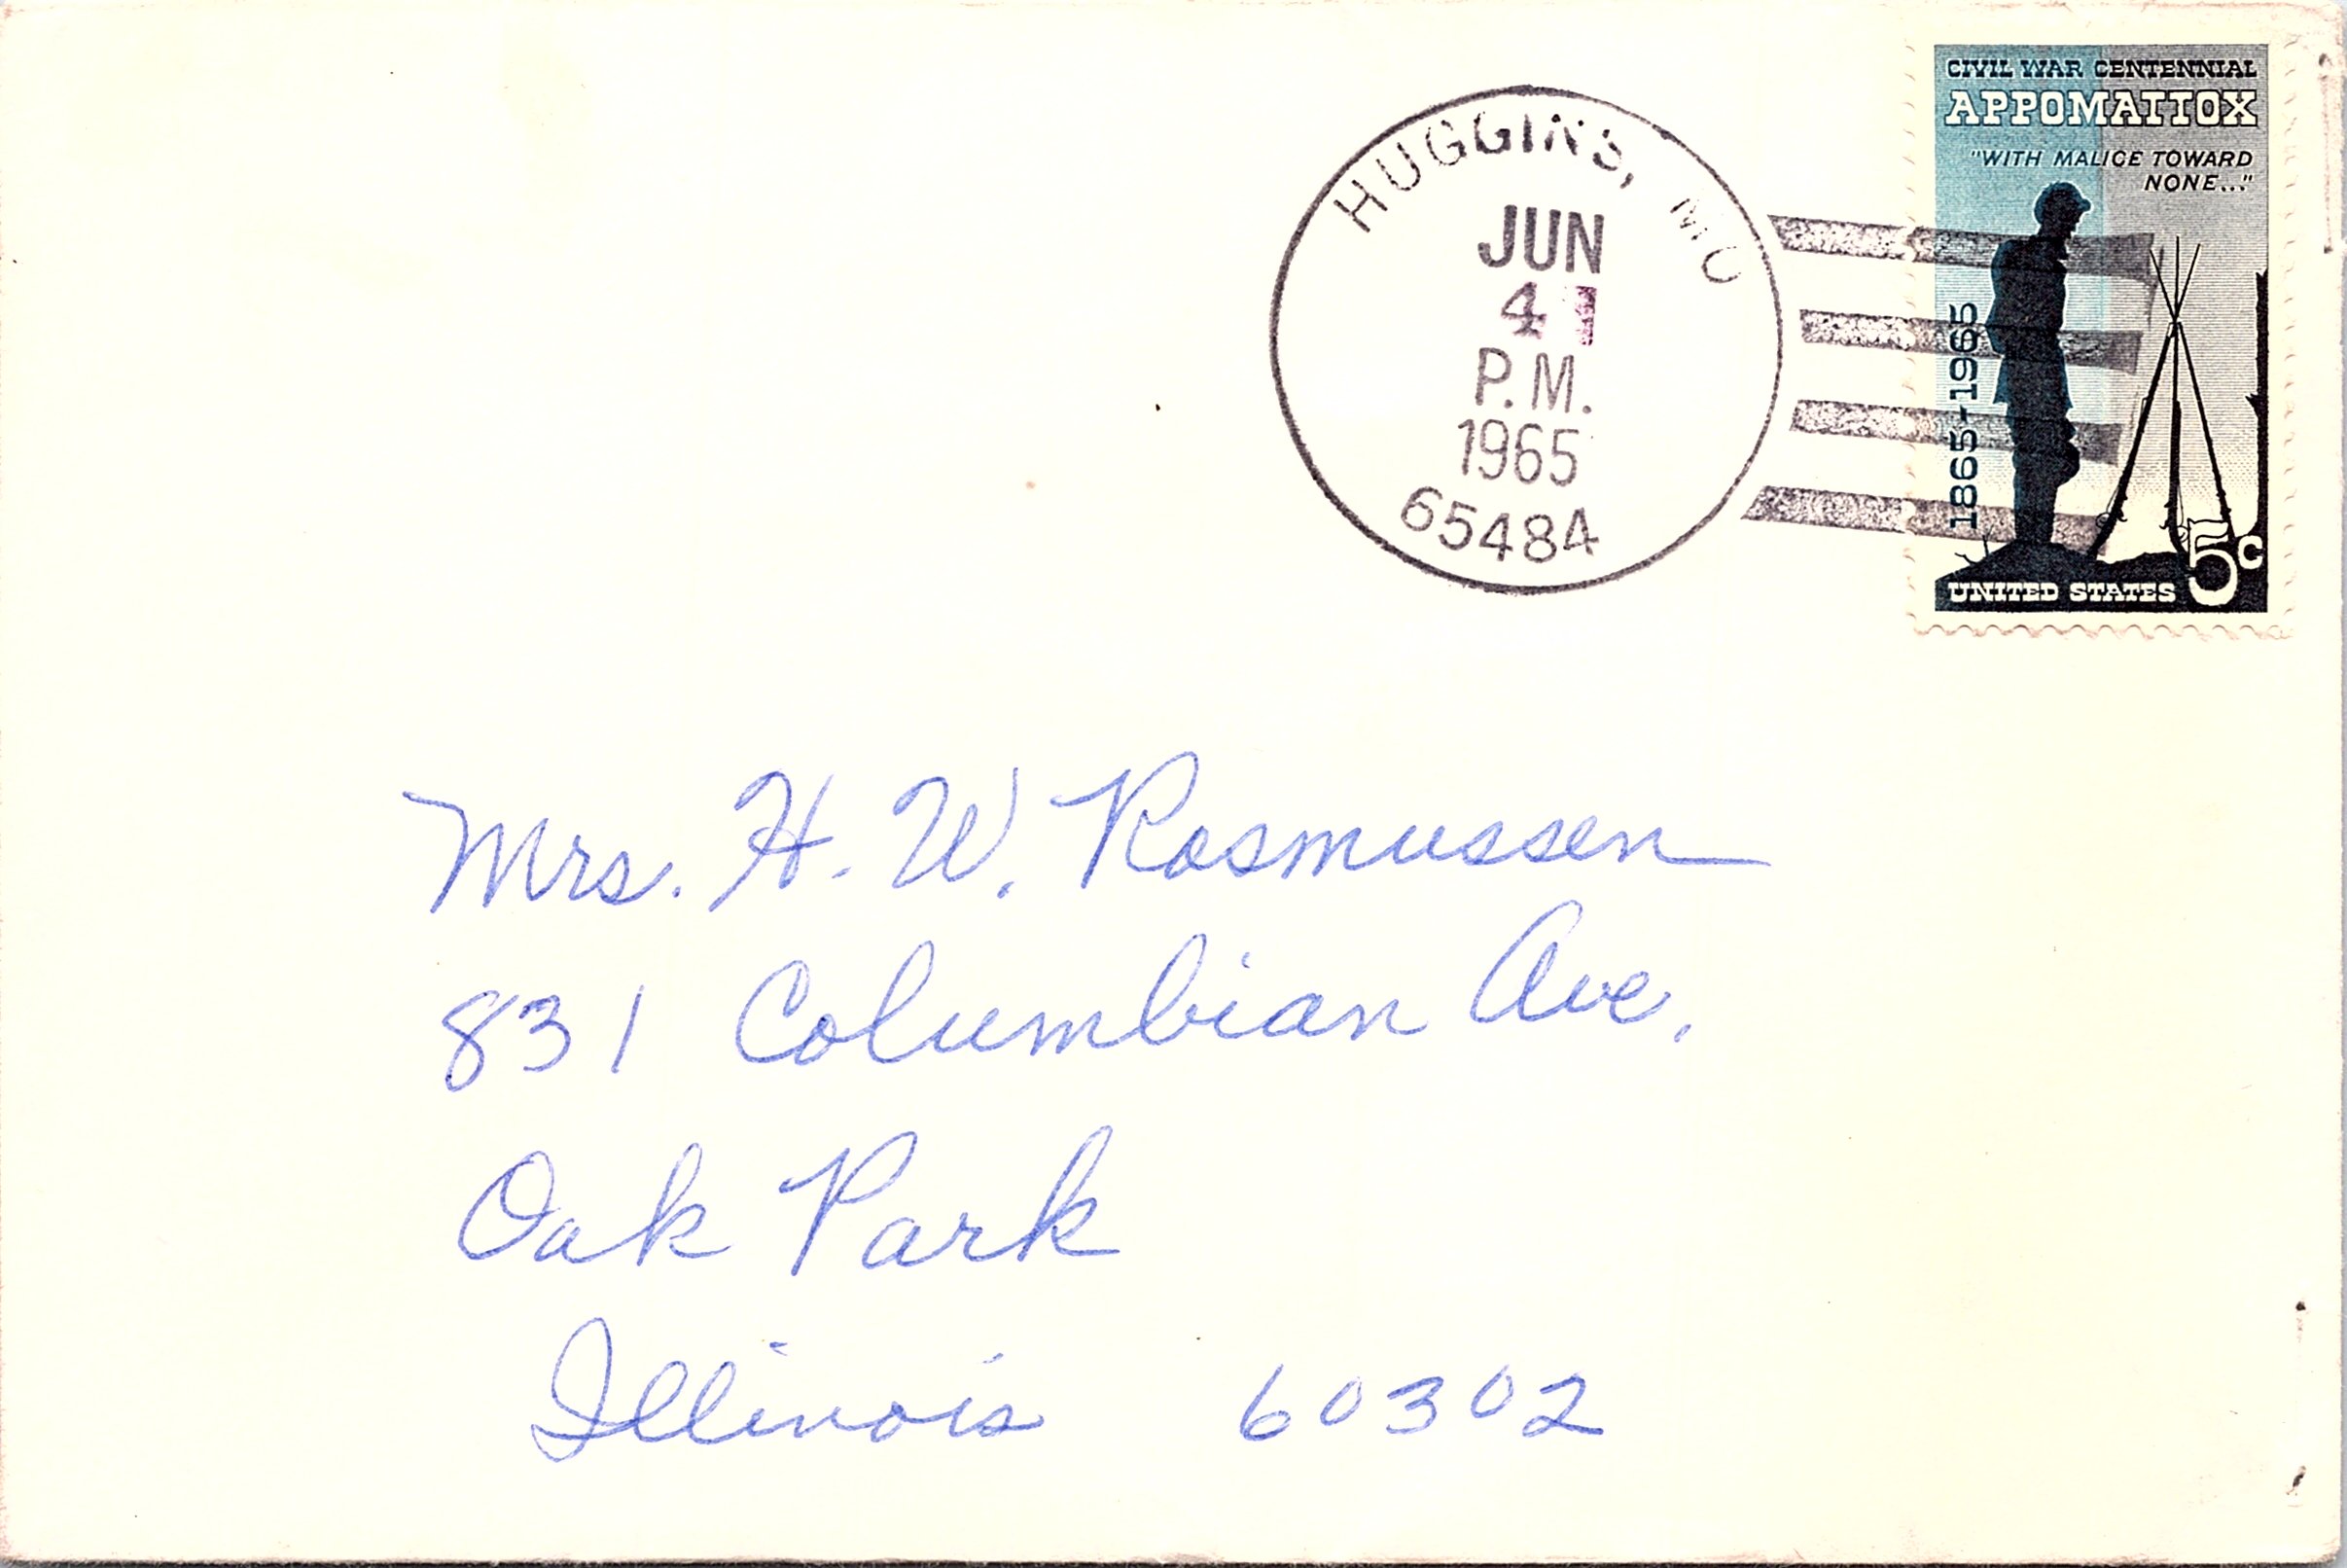 HUGGINS, MO
JUN
4
P.M.
1965
65484
CIVIL WAR CENTENNIAL
APPOMATTOX
"WITH MALICE TOWARD
NONE..."
1865-1965
UNITED STATES 5c
Mrs. H. W. Rasmussen
831 Columbian Ave.
Oak Park
Illinois 60302